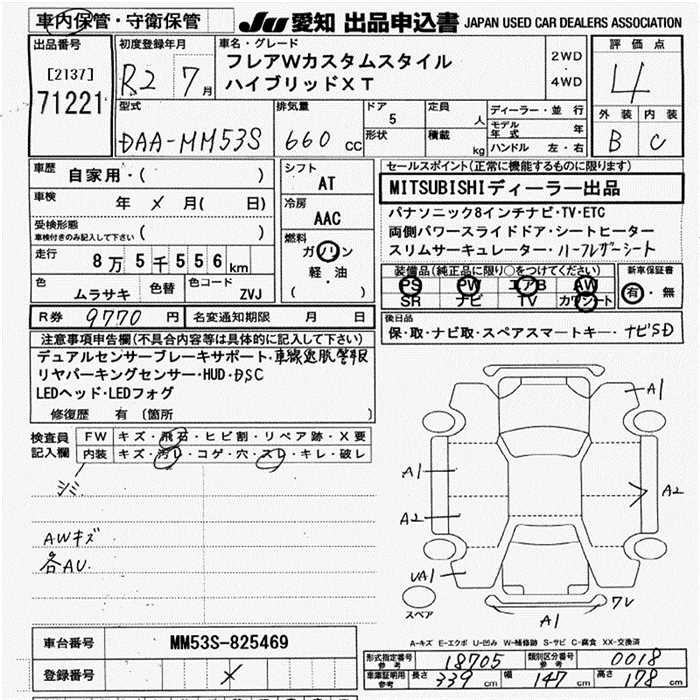 車内保管・守衛保管
JU 愛知 出品申込書 JAPAN USED CAR DEALERS ASSOCIATION
出品番号
[2137]
71221
初度登録年月
R2 7月
車名・グレード
フレアWカスタムスタイル
ハイブリッドXT
2WD
・
4WD
評価点
4
外装 内装
B C
型式
DAA-MM53S
排気量
660 cc
ドア
5
形状
定員 人
積載 kg
ディーラー・並行
モデル年式 年
ハンドル 左・右
車歴
自家用・( )
車検
年 メ 月( 日)
受検形態
車検付きのみ記入して下さい ( )
走行
8万5千556km
色
ムラサキ
色替
色コード
ZVJ
シフト
AT
冷房
AAC
燃料
ガソリン
軽・油
( )
セールスポイント(正常に機能するものに限ります)
MITSUBISHIディーラー出品
パナソニック8インチナビ・TV・ETC
両側パワースライドドア・シートヒーター
スリムサーキュレーター・ハーフレザーシート
装備品(純正品に限り○をつけてください)
PS PW エアB AW
SR ナビ TV カワシート
新車保証書
有・無
R券 9770円
名変通知期限 月 日
後日品
保・取・ナビ取・スペアスマートキー・ナビSD
注意事項申告欄(不具合内容等は具体的に記入して下さい)
デュアルセンサーブレーキサポート・車線逸脱警報
リヤパーキングセンサー・HUD・DSC
LEDヘッド・LEDフォグ
修復歴 有(箇所 )
検査員記入欄
FW キズ・飛石・ヒビ割・リペア跡・X要
内装 キズ・汚レ・コゲ・穴・スレ・キレ・破レ
シミ
AWキズ
各AU.
A1
A1
A2
A2
UA1
スペア
7V
A1
A-キズ E-エクボ U-凹み W-補修跡 S-サビ C-腐食 XX-交換済
車台番号 MM53S-825469
登録番号 メ
形式指定番号 参考 18705
類別区分番号 参考 0018
車庫証明用 参考 長さ 339cm 幅 147cm 高さ 178cm